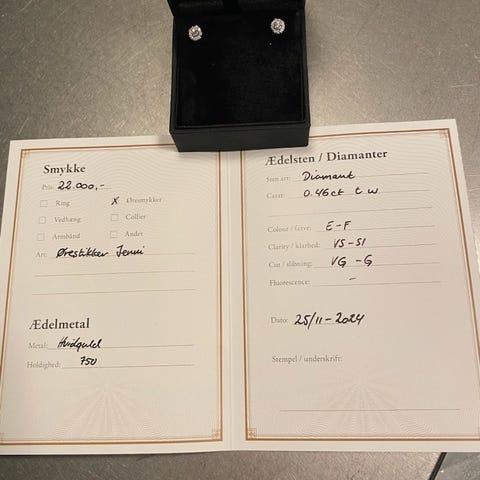 Smykke
Pris: 22.000,-
Ring
X Øresmykker
Vedhæng
Collier
Armbånd
Andet
Art: Ørestikker Jenni
Ædelmetal
Metal: Hvidguld
Holdighed: 750
Ædelsten / Diamanter
Sten art: Diamant
Carat: 0.46ct t w
Colour / farve: E-F
Clarity / klarhed: VS-SI
Cut / slibning: VG-G
Fluorescence: -
Dato: 25/11-2024
Stempel / underskrift: